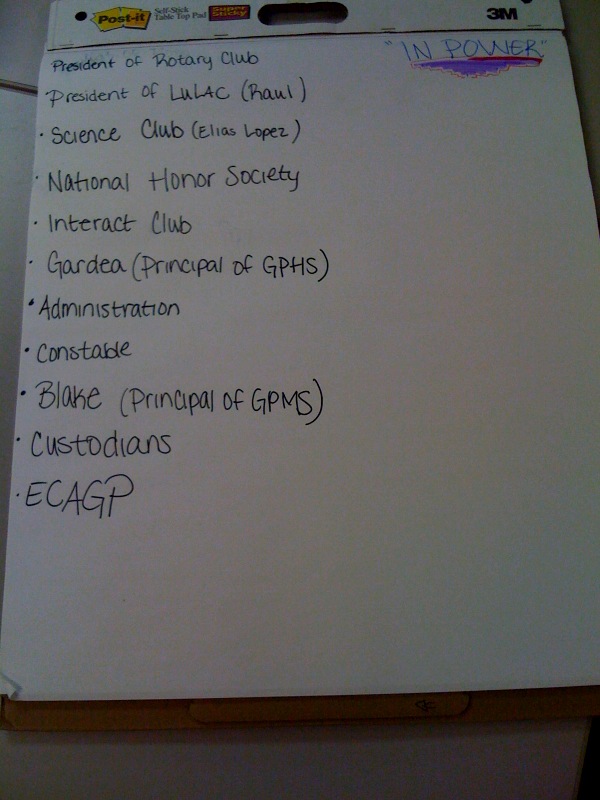 Post-it
Self-Stick
Table Top Pad
Super
Sticky
3M
"IN POWER"
President of Rotary Club
President of LULAC (Raul)
• Science Club (Elias Lopez)
• National Honor Society
• Interact Club
• Gardea (Principal of GPHS)
• Administration
• Constable
• Blake (Principal of GPMS)
• Custodians
• ECAGP